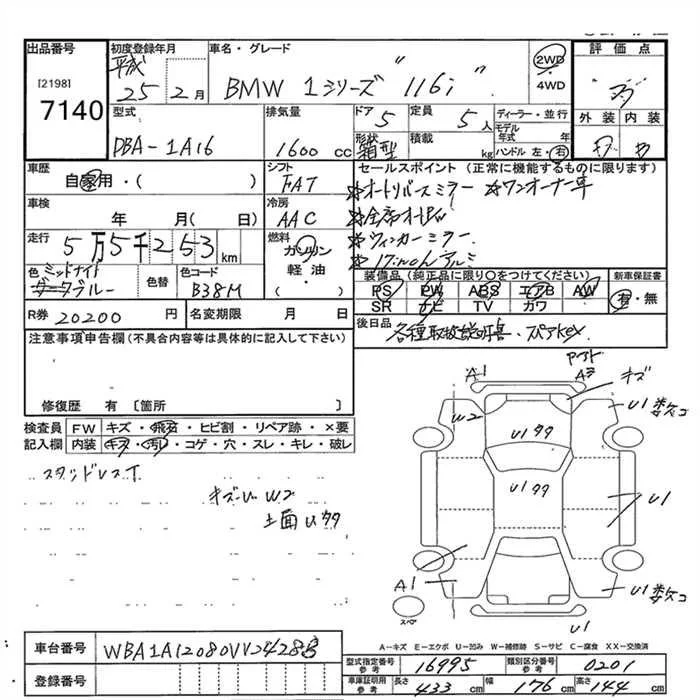 出品番号
[2198]
7140
初度登録年月
平成
25 2月
車名・グレード
BMW 1シリーズ "116i"
2WD
・
4WD
評価点
外装 内装
型式
DBA-1A16
排気量
1600 cc
ドア
5
定員
5人
形状
箱型
積載
kg
ディーラー・並行
モデル
年式 年
ハンドル 左・右
車歴
自家用・( )
シフト
FAT
車検
年 月( 日)
冷房
AAC
走行
5万5千253 km
燃料
ガソリン
軽油・
( )
色 ミッドナイト
ダークブルー
色替
色コード
B38M
R券 20200 円
名変期限 月 日
セールスポイント(正常に機能するものに限ります)
☆オートリバースミラー ☆ワンオーナー車
☆ウィンカーミラー
☆17inchアルミ
装備品(純正品に限り○をつけてください)
PS PW ABS エアB AW
SR ナビ TV カワ
新車保証書
有・無
後日品
各種取扱説明書・スペアKEY
注意事項申告欄(不具合内容等は具体的に記入して下さい)
修復歴 有 〔箇所 〕
検査員
記入欄
FW キズ・飛石・ヒビ割・リペア跡・×要
内装 キズ・汚れ・コゲ・穴・スレ・キレ・破レ
スタッドレスT
キズ・U W2
A1
A3
キズ
W2
U1
U1
U1
U1
A1
U1
スペア
A-キズ E-エクボ U-凹み W-補修跡 S-サビ C-腐食 XX-交換済
車台番号
登録番号
型式指定番号
参考
16995
類別区分番号
参考
0201
車庫証明用
参考
長さ 433 cm
幅 176 cm
高さ 144 cm